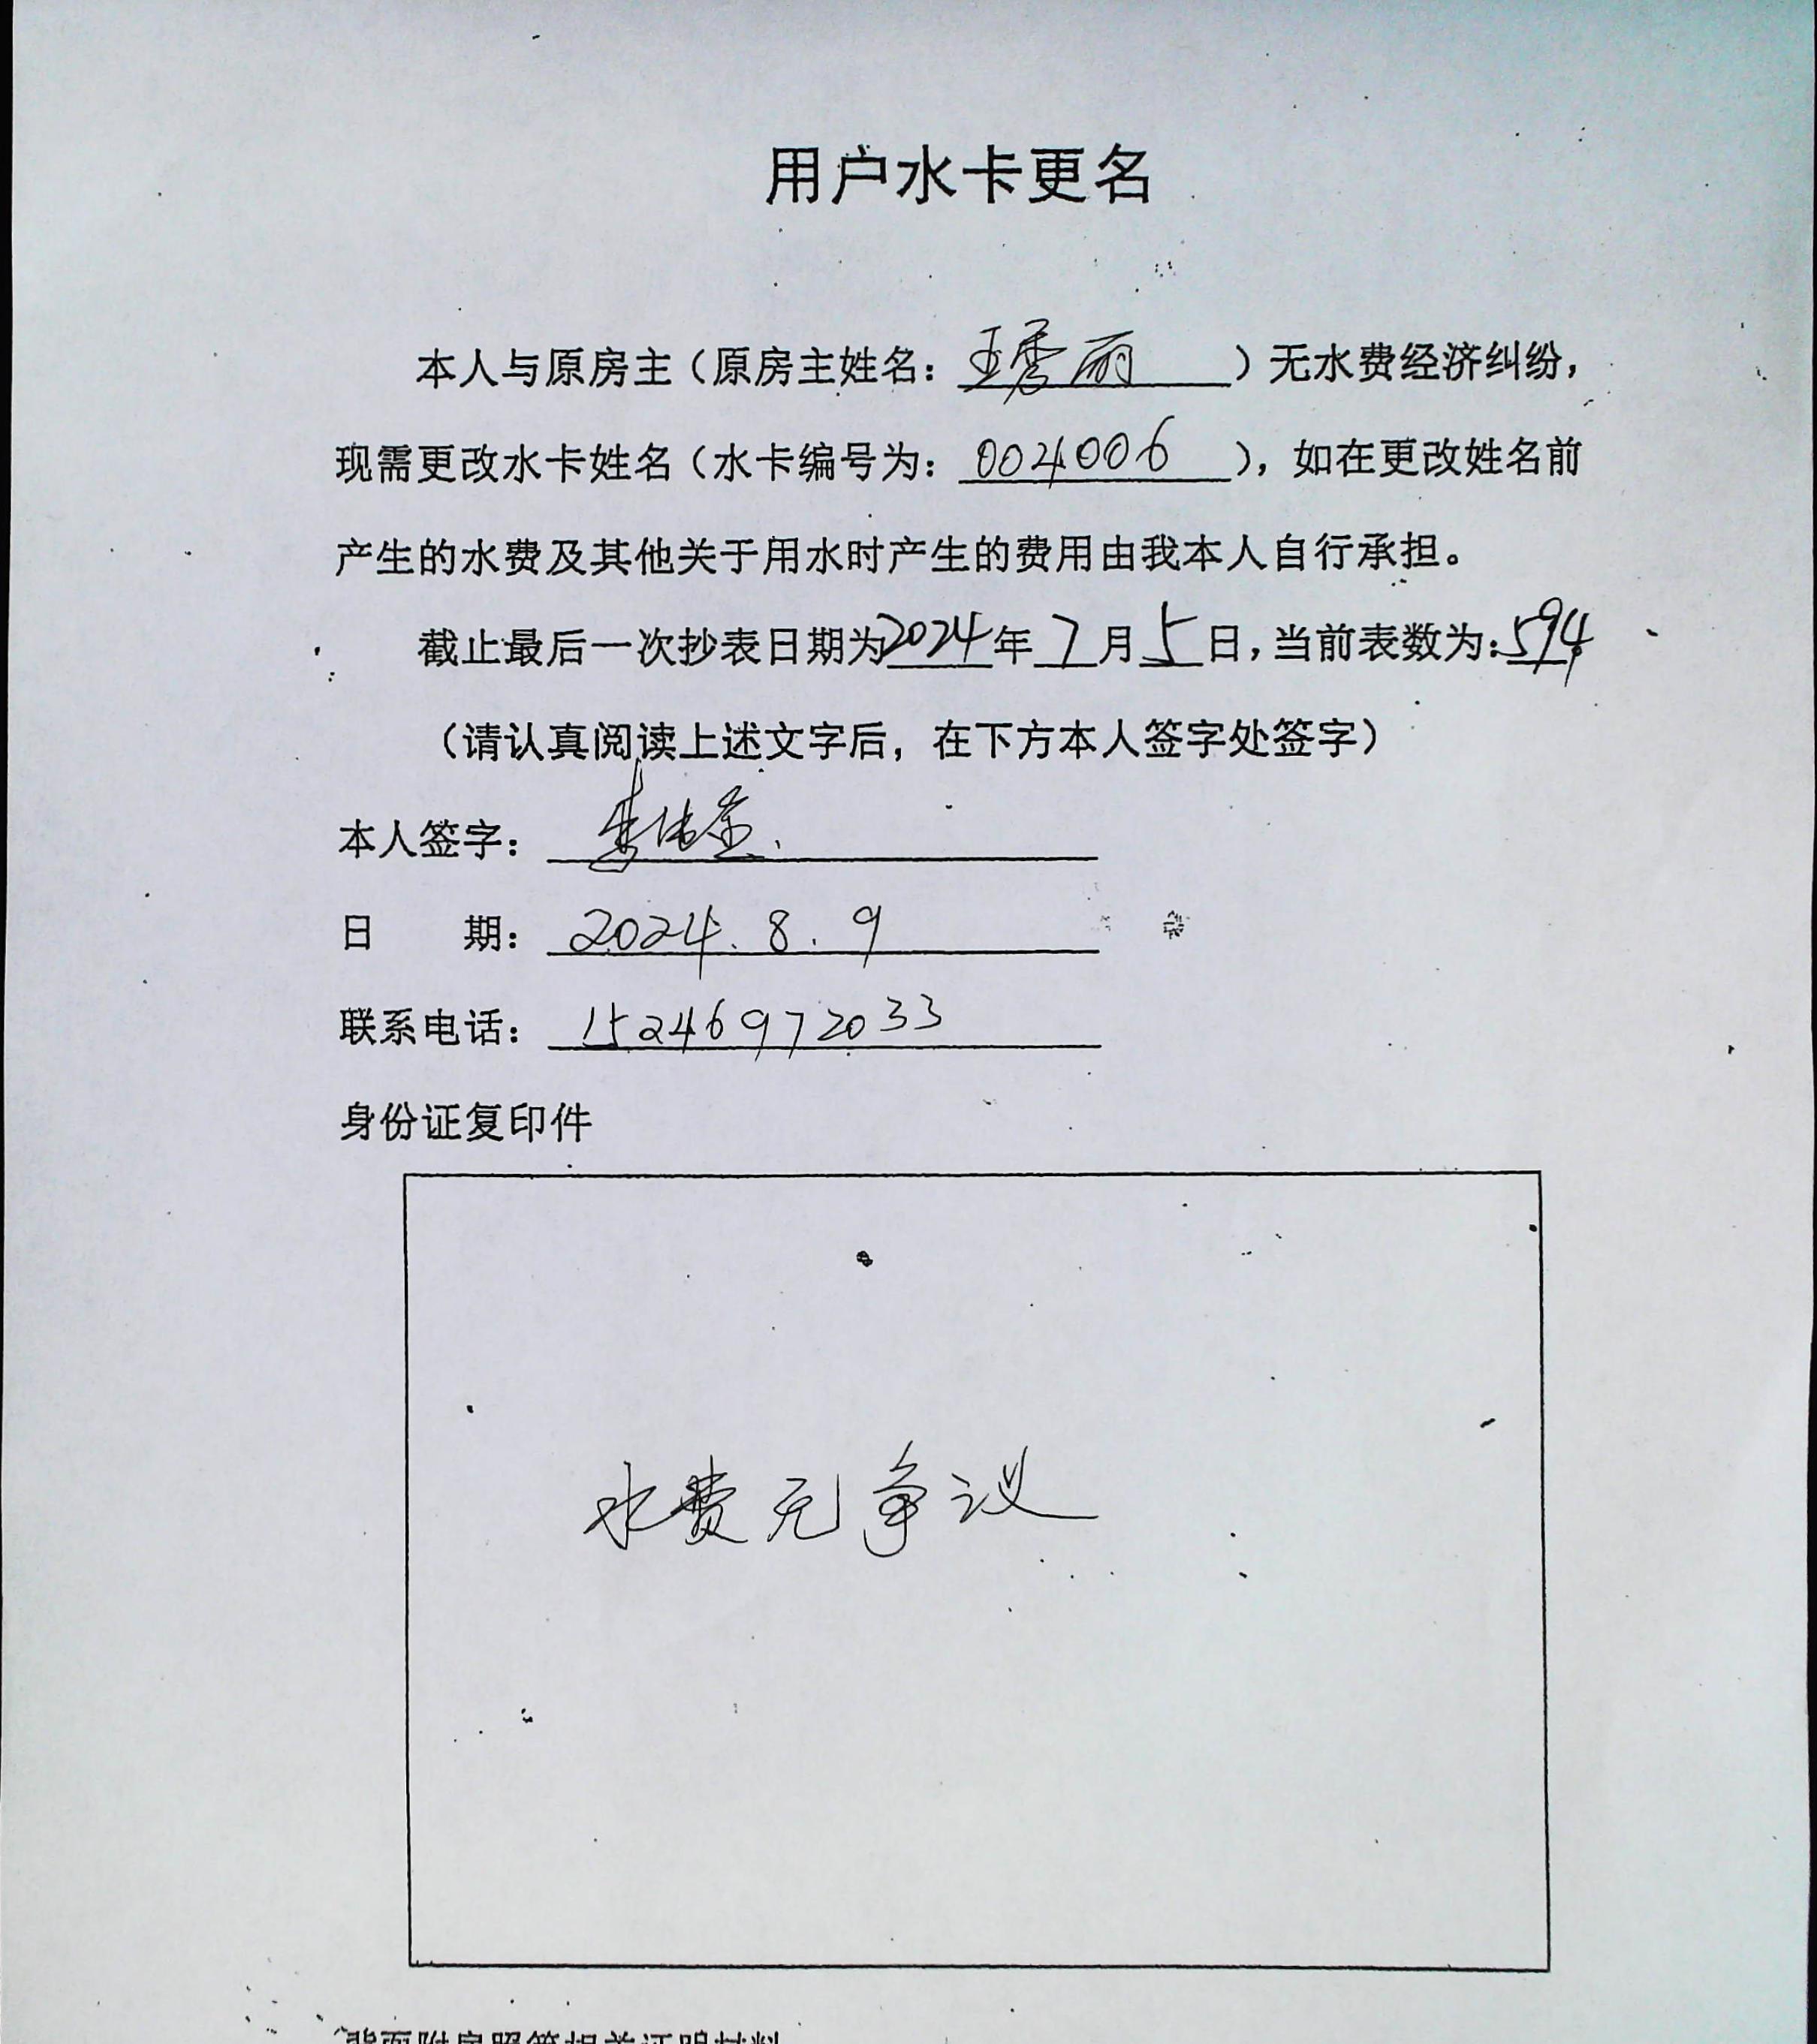 用户水卡更名
本人与原房主（原房主姓名：王秀丽）无水费经济纠纷，
现需更改水卡姓名（水卡编号为：004006），如在更改姓名前
产生的水费及其他关于用水时产生的费用由我本人自行承担。
截止最后一次抄表日期为2024年7月5日，当前表数为：594
（请认真阅读上述文字后，在下方本人签字处签字）
本人签字：
日 期：2024.8.9
联系电话：15246972033
身份证复印件
水费无争议
背面附房照等相关证明材料